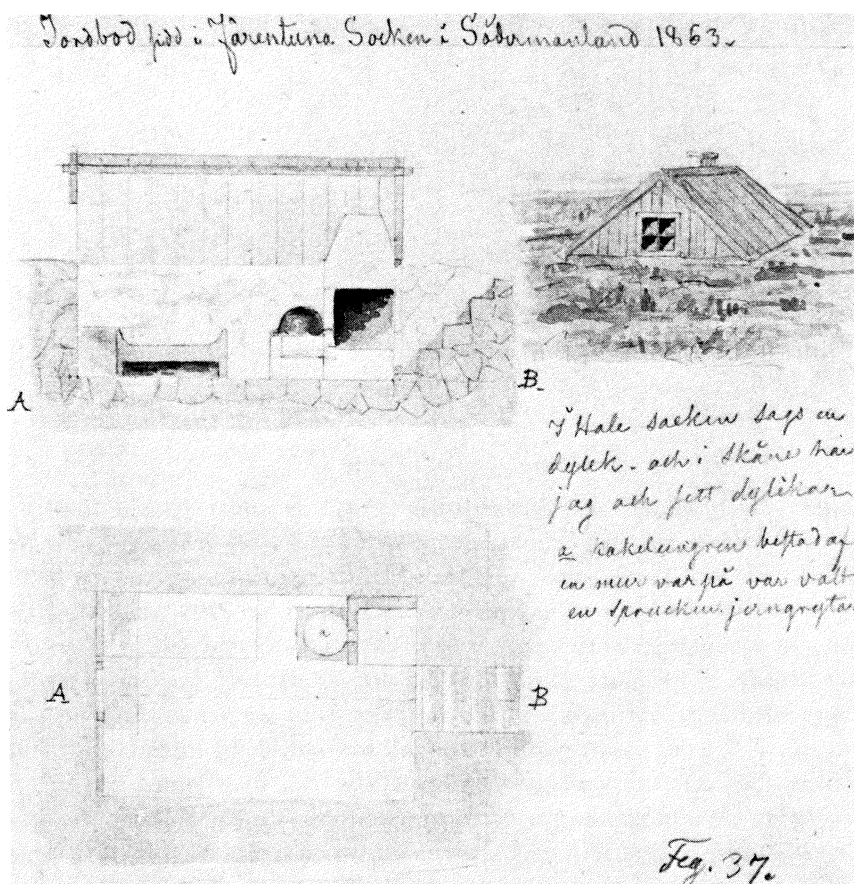 Jordbod sedd i Järentuna Socken i Södermanland 1863.
A
B.
I Hale socken sågs en
dylik - och i Skåne har
jag och sett dylika
a kakelungnen bestod af
en mur varpå var vält
en sprucken jerngryta.
a
A
B
Feg. 37.